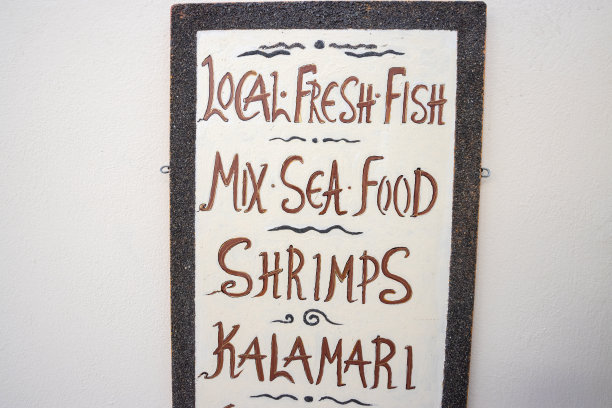 LOCAL·FRESH·FISH
MIX·SEA·FOOD
SHRIMPS
KALAMARI